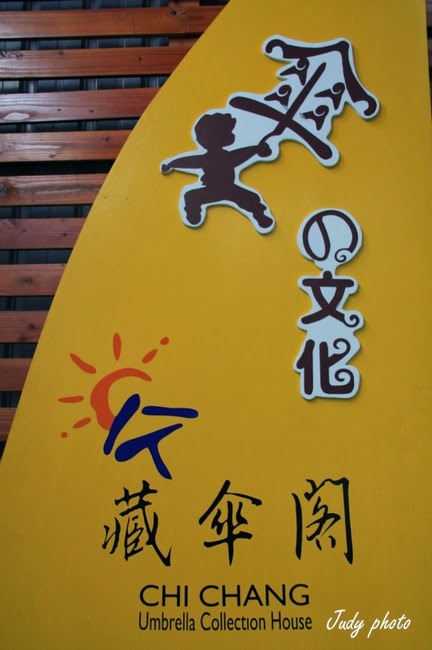 傘
の文化
藏傘閣
CHI CHANG
Umbrella Collection House
Judy photo